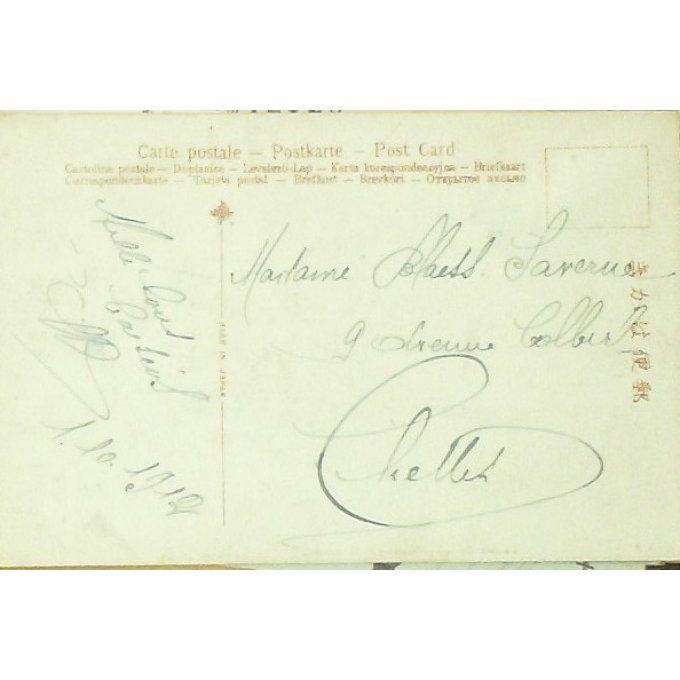 Carte postale — Postkarte — Post Card
Cartolina postale — Dopisnice — Levelező-Lap — Karta korespondencyjna — Briefkaart
Correspondenzkarte — Tarjeta postal — Brefkort — Brevkort — Открытое письмо
Mille
1. 10. 1912
MADE IN JAPAN
Madame Blaess Saverne
9 Avenue Colbert
Chelles
きかは便郵